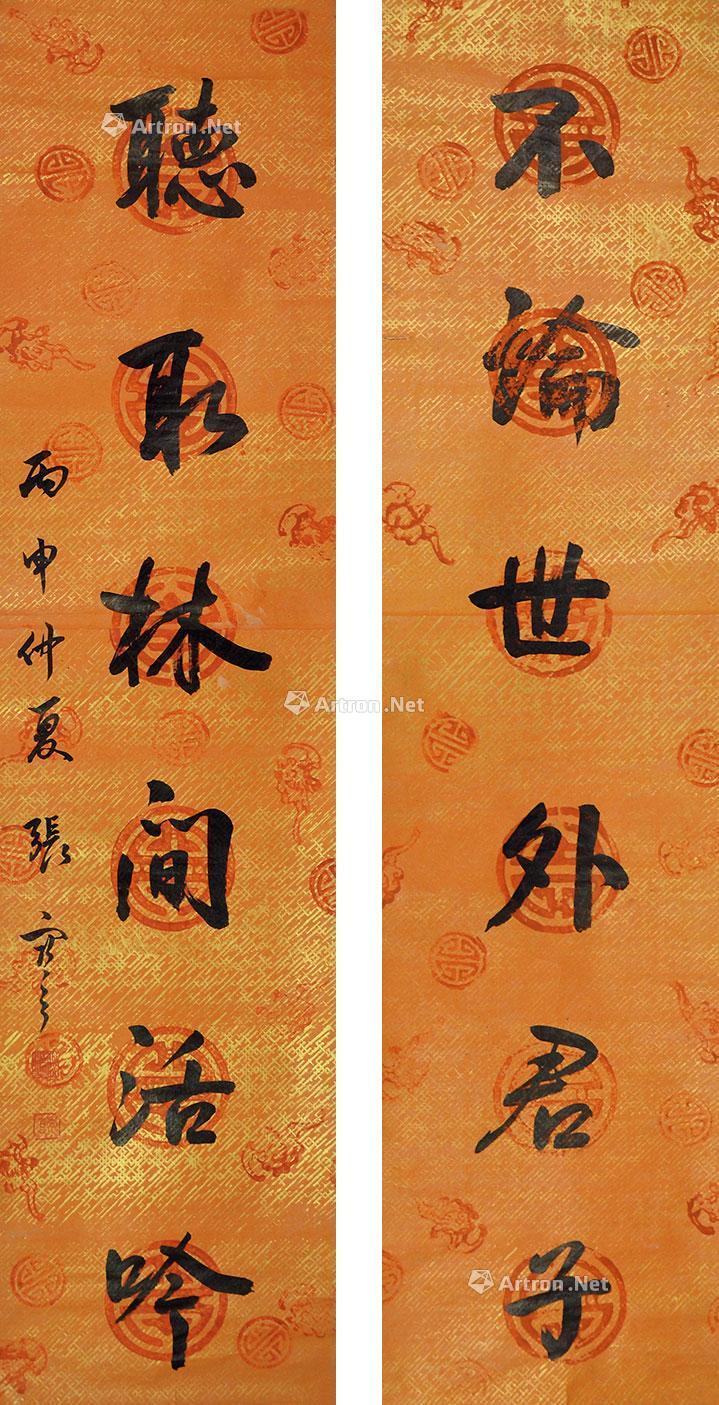 不淪世外君子
聽取林間活吟
丙申仲夏 張
Artron.Net
Artron.Net
Artron.Net